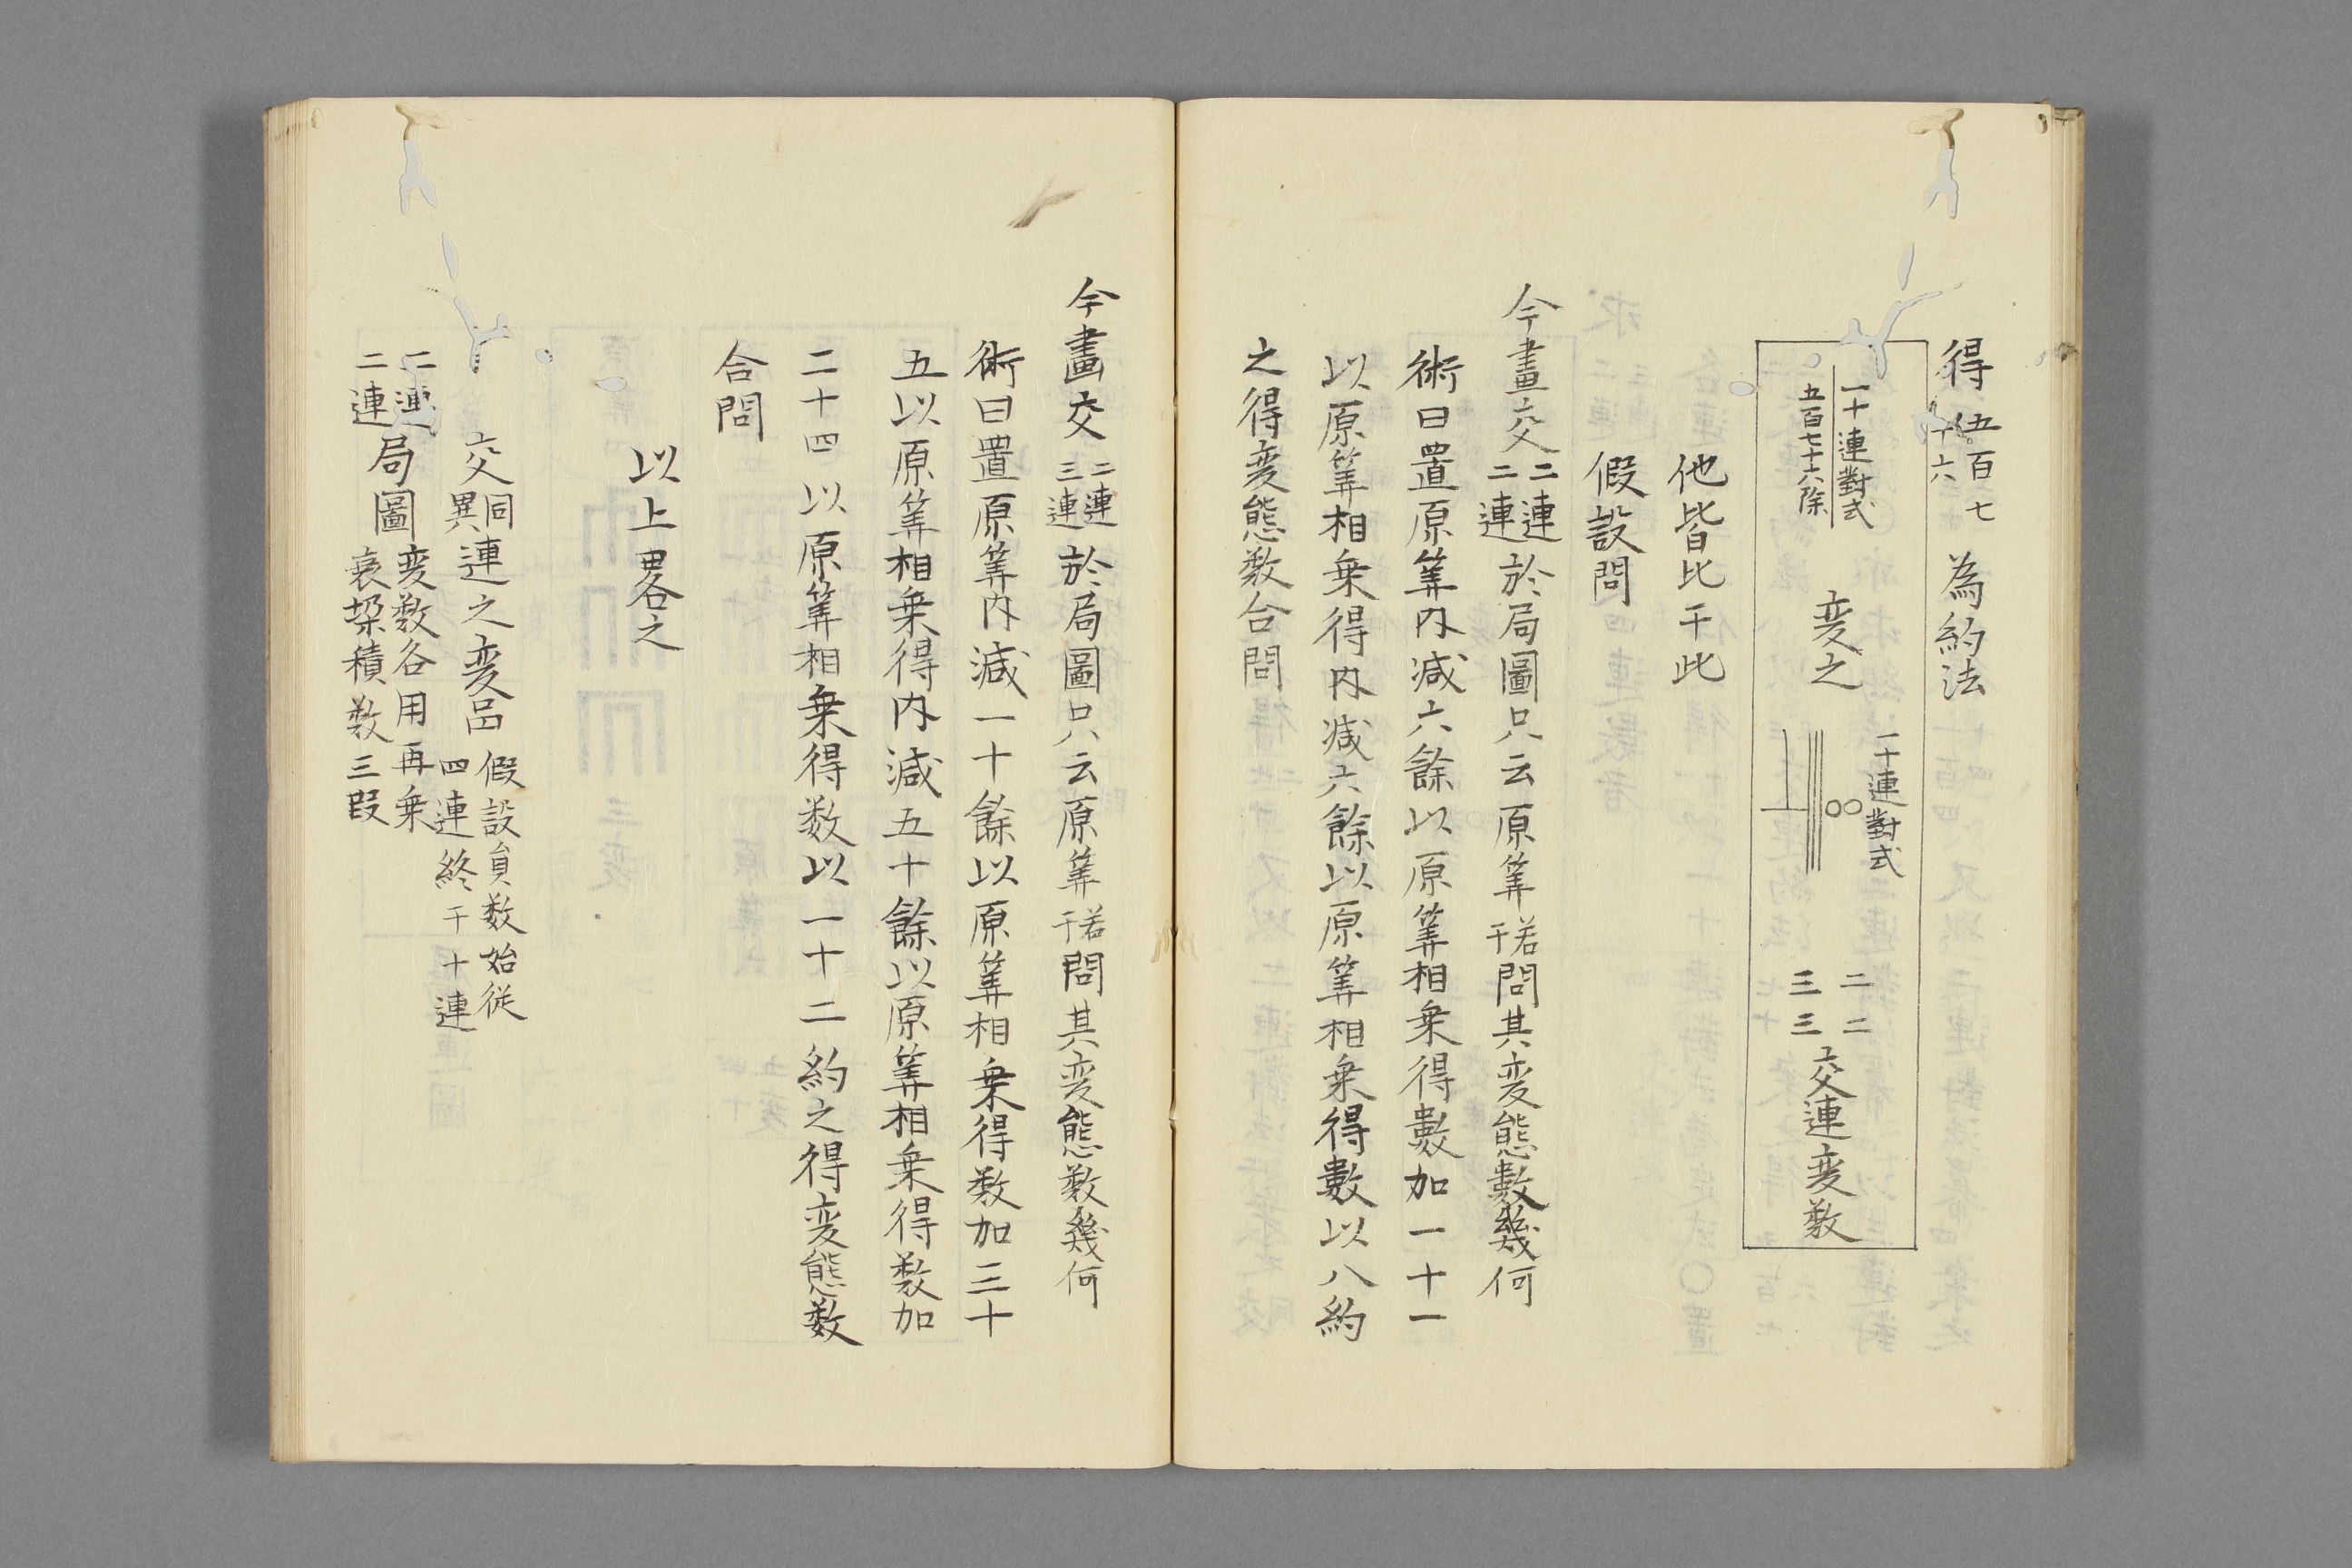 得五百七十六為約法
一十連對式
五百七十六除
変之
一十連對式
二二
三三
交連変数
他皆比于此
假設問
今畫交二連二連於局圖只云原筭若干問其変態數幾何
術曰置原筭内减六餘以原筭相乗得數加一十一
以原筭相乗得内减六餘以原筭相乗得數以八約
之得変態数合問
今畫交二連三連於局圖只云原筭若干問其変態数幾何
術曰置原筭内减一十餘以原筭相乗得数加三十
五以原筭相乗得内减五十餘以原筭相乗得数加
二十四以原筭相乗得数以一十二約之得変態数
合問
以上畧之
交同異連之変
假設負数始従
四連終于十連
二連二連局圖変数各用再乗
衰垜積数三叚